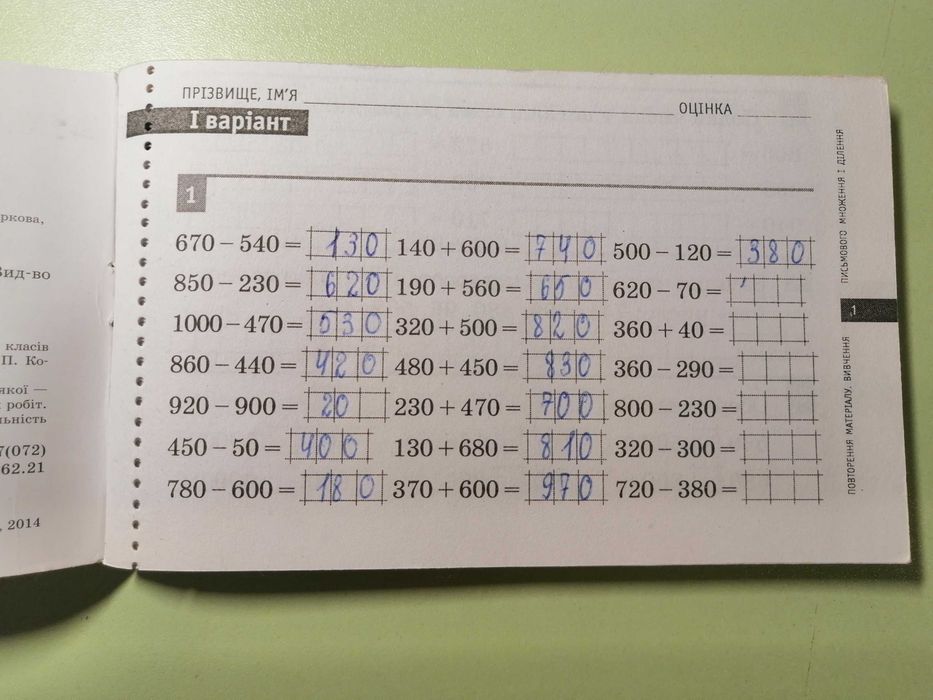 ркова,
Вид-во
класів
П. Ко-
якої —
робіт.
льність
7(072)
62.21
, 2014
ПРІЗВИЩЕ, ІМ'Я ОЦІНКА
І варіант
1
670 – 540 = 130 140 + 600 = 740 500 – 120 = 380
850 – 230 = 620 190 + 560 = 650 620 – 70 =
1000 – 470 = 530 320 + 500 = 820 360 + 40 =
860 – 440 = 420 480 + 450 = 830 360 – 290 =
920 – 900 = 20 230 + 470 = 700 800 – 230 =
450 – 50 = 400 130 + 680 = 810 320 – 300 =
780 – 600 = 180 370 + 600 = 970 720 – 380 =
ПОВТОРЕННЯ МАТЕРІАЛУ. ВИВЧЕННЯ
1
ПИСЬМОВОГО МНОЖЕННЯ І ДІЛЕННЯ